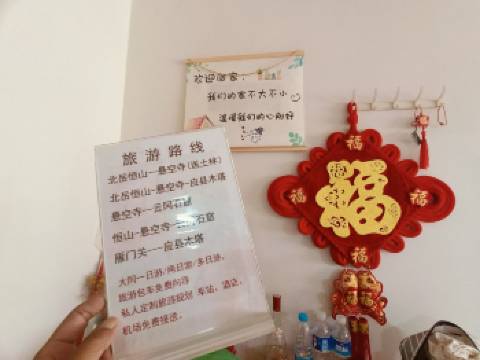 欢迎回家：
我们的家不大不小
温暖我们的心刚好
旅游路线
北岳恒山—悬空寺(浑土林)
北岳恒山—悬空寺-应县木塔
悬空寺—云冈石窟
恒山—悬空寺—云冈石窟
雁门关—应县木塔
大同一日游/两日游/多日游，
旅游包车免费问询
私人定制旅游规划 车站，酒店，
机场免费接送。
福
福
福
福
福